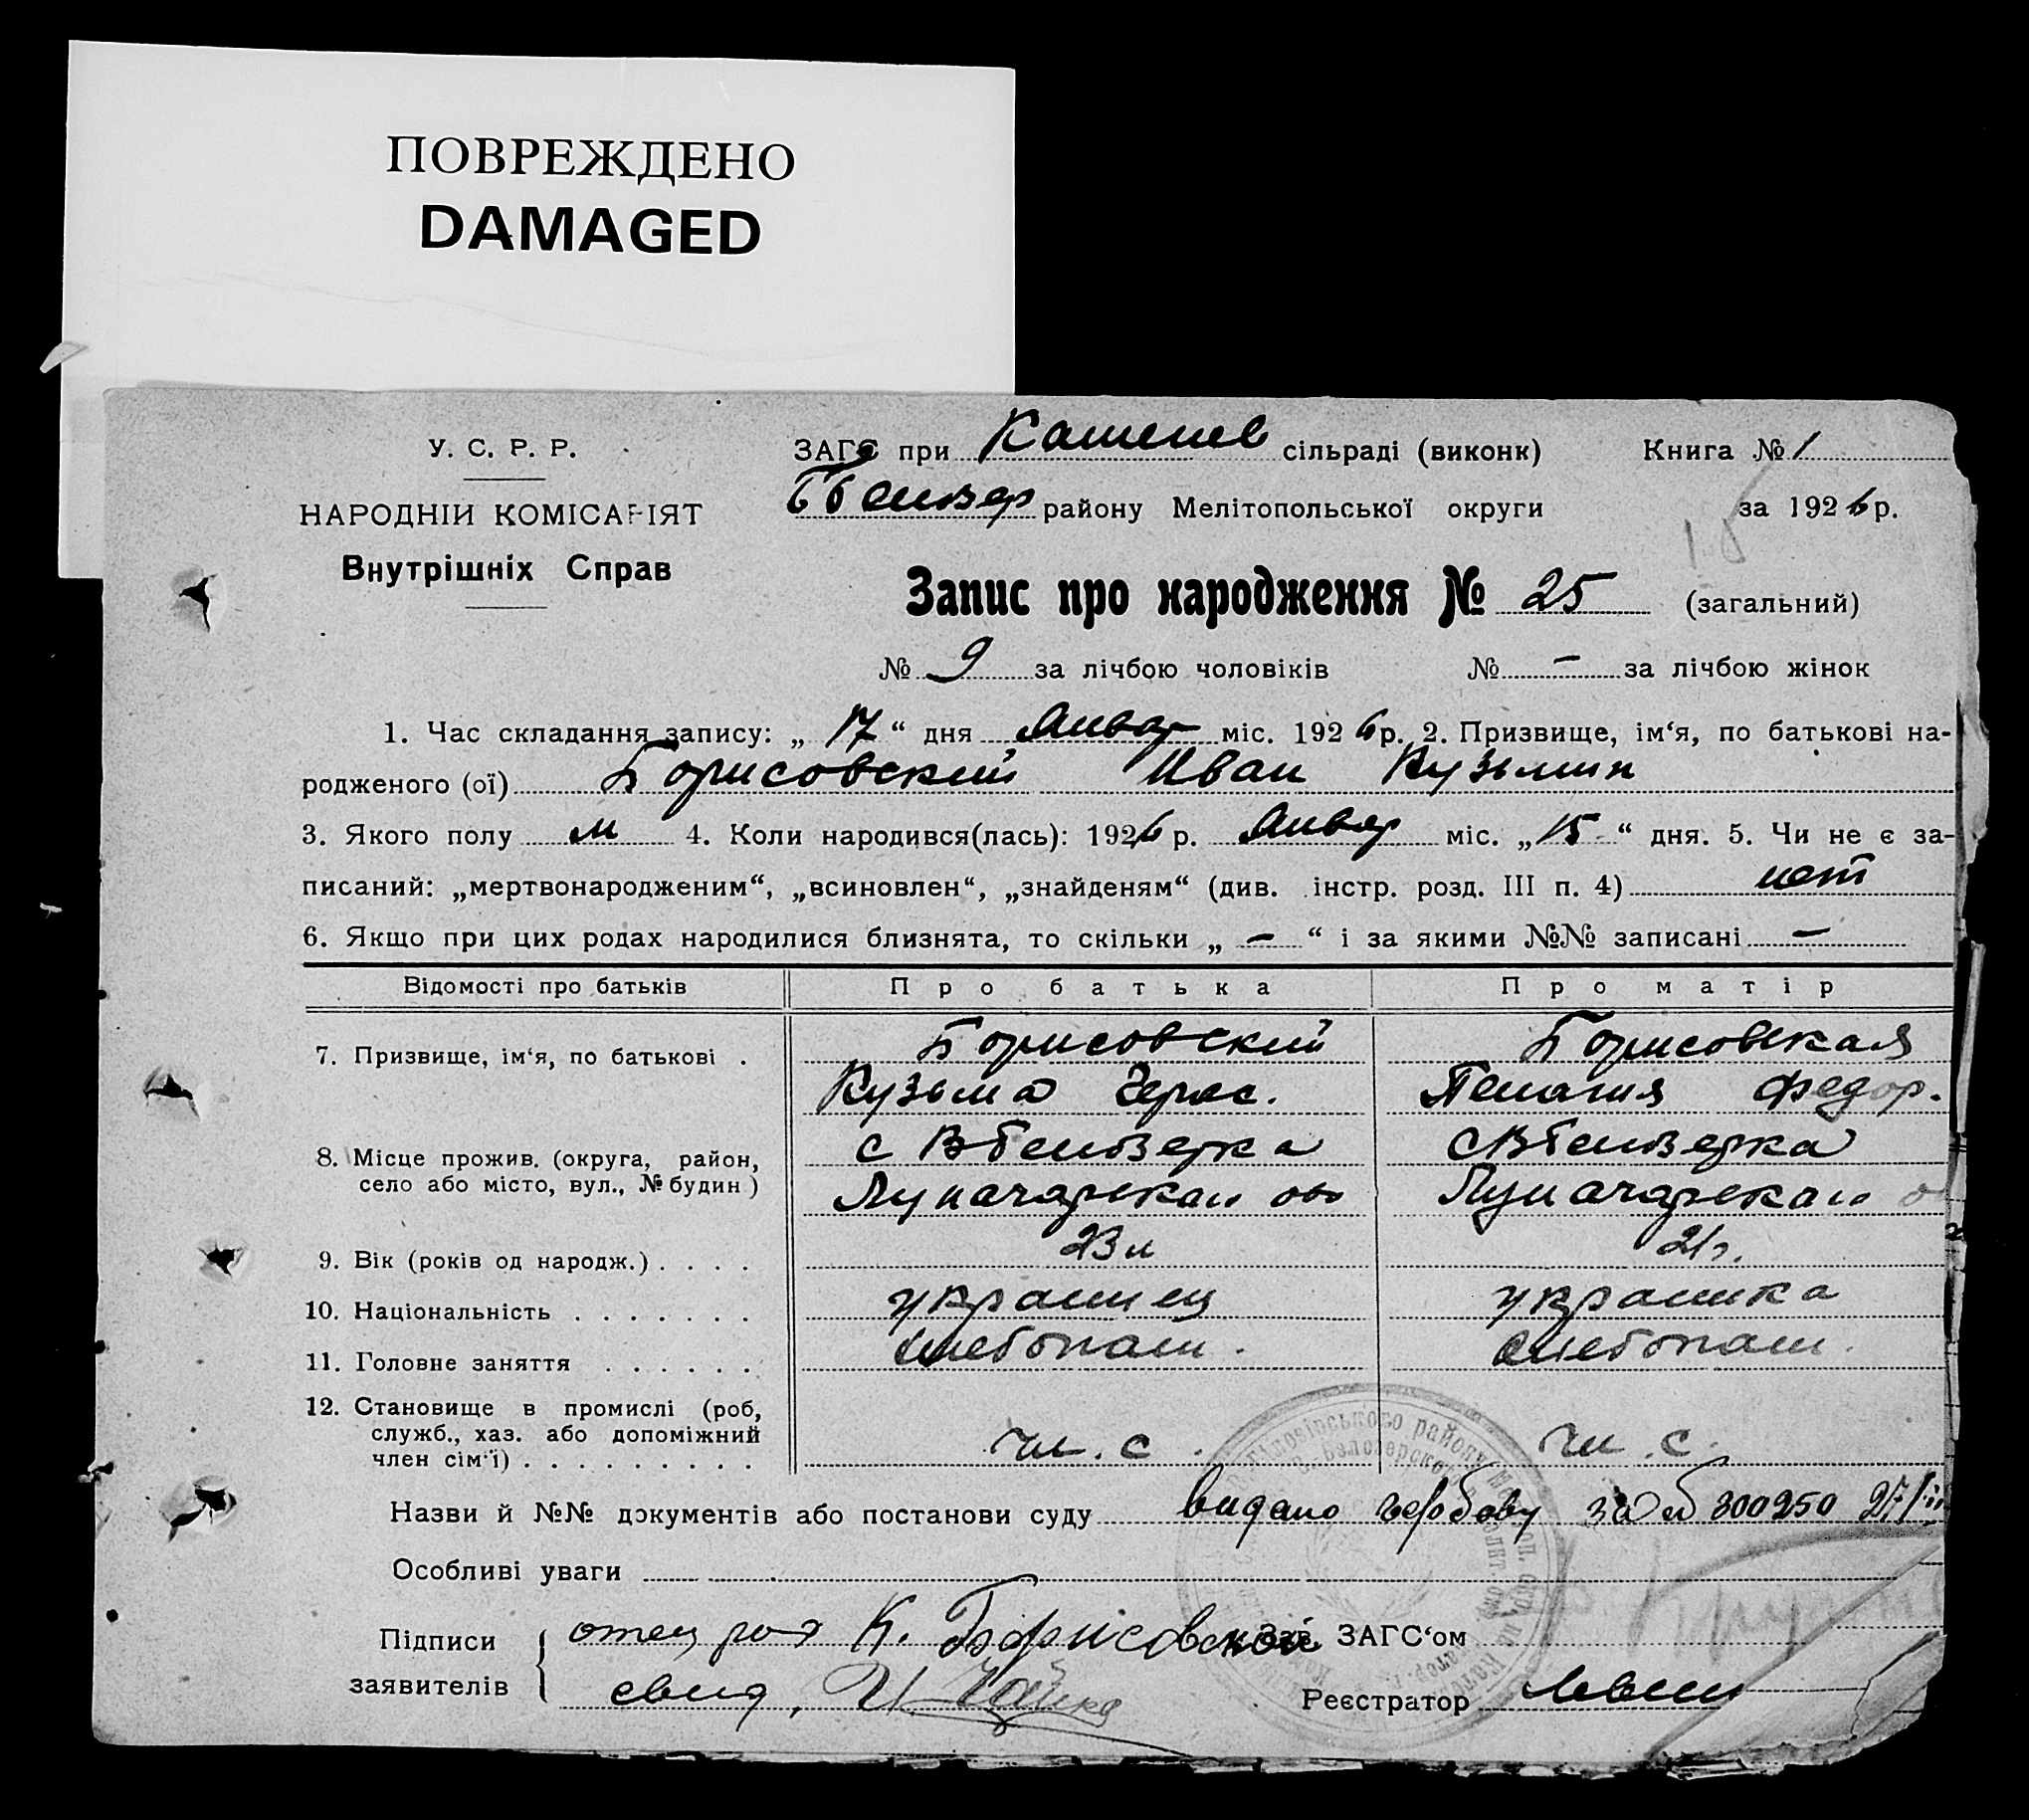 ПОВРЕЖДЕНО
DAMAGED
У. С. Р. Р.
НАРОДНІЙ КОМІСАРІЯТ
Внутрішніх Справ
ЗАГС при сільраді (виконк) Книга № 1
району Мелітопольської округи за 1926 р.
Запис про народження № 25 (загальний)
№ 9 за лічбою чоловіків № — за лічбою жінок
1. Час складання запису: „ 17 “ дня Январ міс. 1926 р. 2. Призвище, ім‘я, по батькові на-
родженого (ої) Борисовский Иван Кузьмин
3. Якого полу м 4. Коли народився(лась): 1926 р. Январ міс. „ 15 “ дня. 5. Чи не є за-
писаний: „мертвонародженим“, „всиновлен“, „знайденям“ (див. інстр. розд. III п. 4) нет
6. Якщо при цих родах народилися близнята, то скільки „ — “ і за якими №№ записані —
Відомості про батьків Про батька Про матір
7. Призвище, ім‘я, по батькові . Борисовский Борисовская
Кузьма Герас. Пелагия Федор.
8. Місце прожив. (округа, район, село або місто, вул., № будин ) с Вбелозерка с Вбелозерка
9. Вік (років од народж.) . . . . 23 л 21 г.
10. Національність . . . . . . . украинец украинка
11. Головне заняття . . . . . . хлебопаш. хлебопаш.
12. Становище в промислі (роб,
служб., хаз. або допоміжний
член сім‘ї) . . . . . . . . . чл. с. чл. с.
Назви й №№ документів або постанови суду видано гербову за № 300250
Особливі уваги
Підписи заявителів отец К. Борисовской Зав. ЗАГС‘ом
свид. И. Чайка Реєстратор